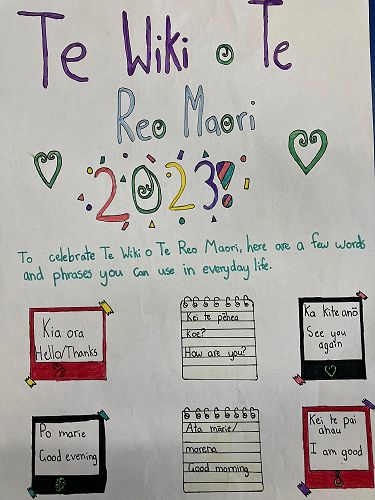 Te Wiki o Te
Reo Maori
2023!
To celebrate Te Wiki o Te Reo Maori, here are a few words
and phrases you can use in everyday life.
Kia ora
Hello/Thanks
Kei te pēhea
koe?
How are you?
Ka kite anō
See you
again
Po marie
Good evening
Ata mārie/
morena
Good morning
Kei te pai
ahau
I am good